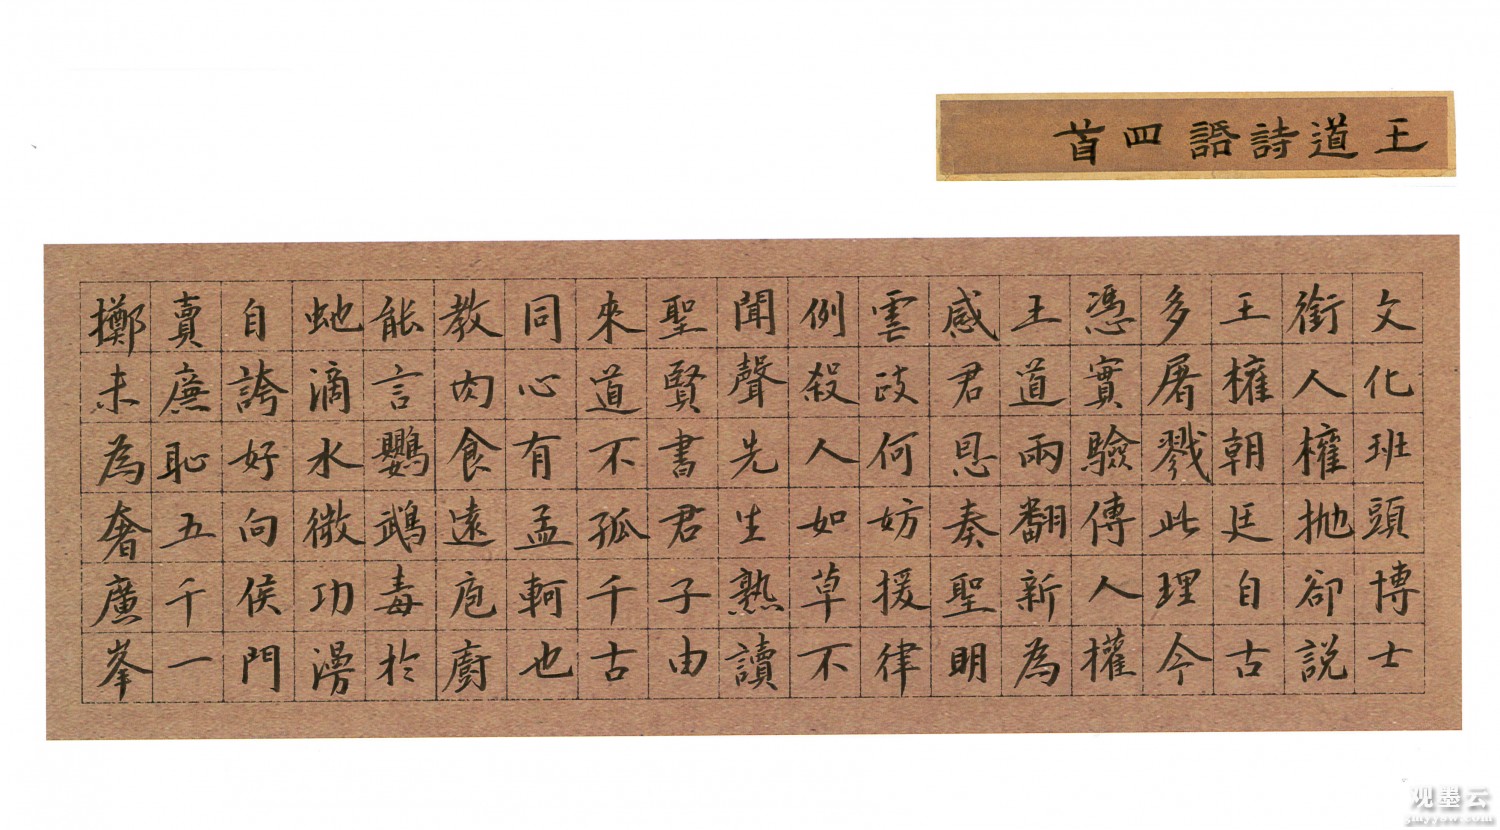 王道詩話四首
文化班頭博士
銜人權抛卻説
王權朝廷自古
多屠戮此理今
憑實驗傳人權
王道兩翻新為
感君恩奏聖明
虐政何妨援律
例殺人如草不
聞聲先生熟讀
聖賢書君子由
來道不孤千古
同心有孟軻也
教肉食遠庖廚
能言鸚鵡毒於
虵滴水微功漫
自誇好向侯門
賣廉恥五千一
擲未為奢廣峯
观墨云
gmyyow.com